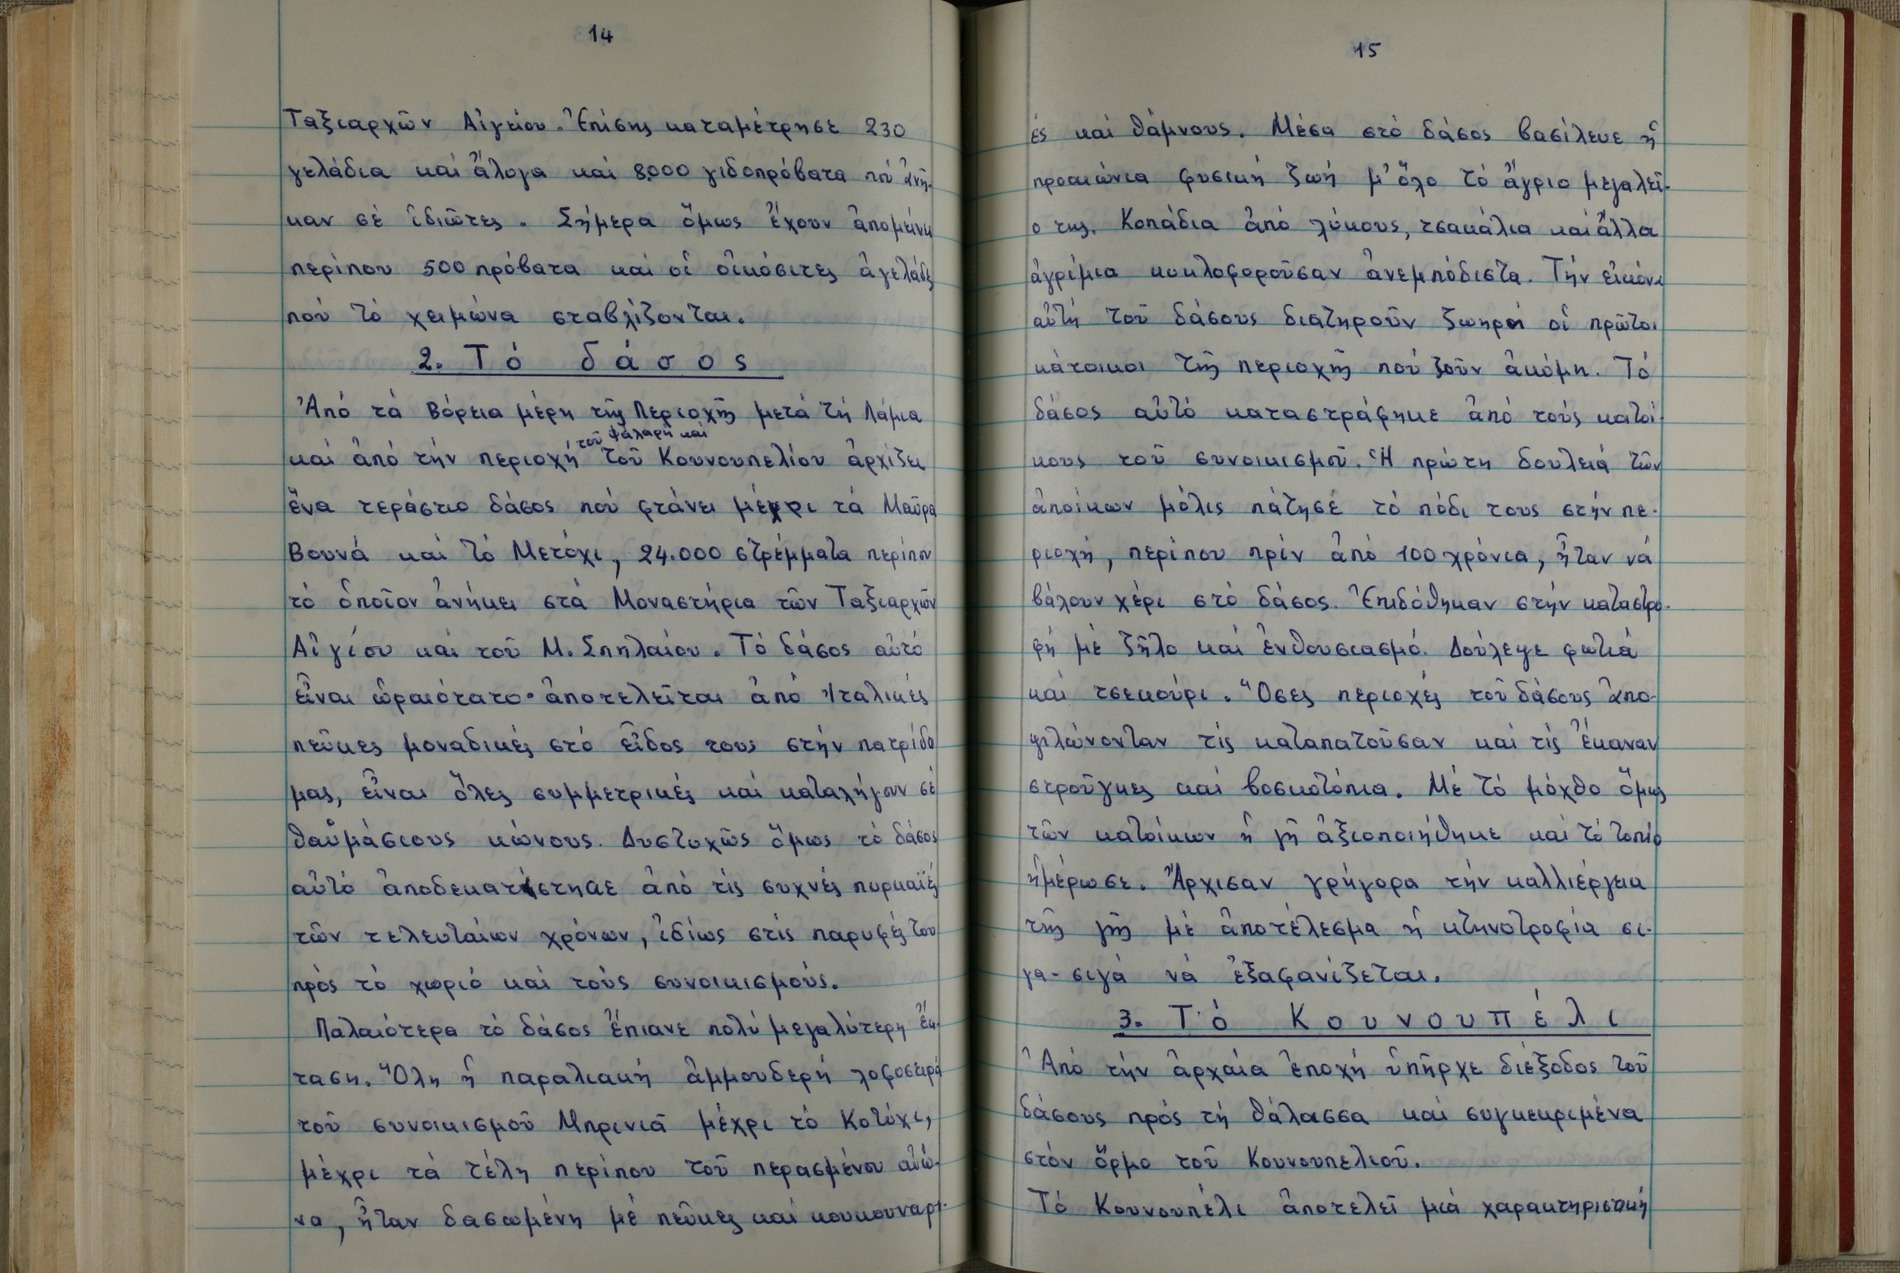 14
Ταξιαρχῶν Αἰγείου. Ἐπίσης καταμέτρησε 230
γελάδια καί ἄλογα καί 8000 γιδοπρόβατα πού ἀνῆ-
καν σέ ἰδιῶτες. Σήμερα ὅμως ἔχουν ἀπομείνει
περίπου 500 πρόβατα καί οἱ οἰκόσιτες ἀγελάδες
πού τό χειμώνα σταβλίζονται.
2. Τό δάσος
Ἀπό τά Βόρεια μέρη τῆς Περιοχῆς μετά τή Λάμια
τοῦ Φαλαρή καί
καί ἀπό τήν περιοχή τοῦ Κουνουπελίου ἀρχίζει
ἕνα τεράστιο δάσος πού φτάνει μέχρι τά Μαῦρα
Βουνά καί τό Μετόχι, 24.000 στρέμματα περίπου
τό ὁποῖον ἀνήκει στά Μοναστήρια τῶν Ταξιαρχῶν
Αἰγίου καί τοῦ Μ. Σπηλαίου. Τό δάσος αὐτό
εἶναι ὡραιότατο· ἀποτελεῖται ἀπό Ἰταλικές
πεῦκες μοναδικές στό εἶδος τους στήν πατρίδα
μας, εἶναι ὅλες συμμετρικές καί καταλήγουν σέ
θαυμάσιους κώνους. Δυστυχῶς ὅμως τό δάσος
αὐτό ἀποδεκατίστηκε ἀπό τίς συχνές πυρκαϊές
τῶν τελευταίων χρόνων, ἰδίως στίς παρυφές του
πρός τό χωριό καί τούς συνοικισμούς.
Παλαιότερα τό δάσος ἔπιανε πολύ μεγαλύτερη ἔκ-
ταση. Ὅλη ἡ παραλιακή ἀμμουδερή λοφοσειρά
τοῦ συνοικισμοῦ Μπρινιᾶ μέχρι τό Κοτύχι,
μέχρι τά τέλη περίπου τοῦ περασμένου αἰώ-
να, ἦταν δασωμένη μέ πεῦκες καί κουκουναρι-
15
ές καί θάμνους. Μέσα στό δάσος βασίλευε ἡ
προαιώνια φυσική ζωή μ' ὅλο τό ἄγριο μεγαλεῖ-
ο της. Κοπάδια ἀπό λύκους, τσακάλια καί ἄλλα
ἀγρίμια κυκλοφοροῦσαν ἀνεμπόδιστα. Τήν εἰκόνα
αὐτή τοῦ δάσους διατηροῦν ζωηρά οἱ πρῶτοι
κάτοικοι τῆς περιοχῆς πού ζοῦν ἀκόμη. Τό
δάσος αὐτό καταστράφηκε ἀπό τούς κατοί-
κους τοῦ συνοικισμοῦ. Ἡ πρώτη δουλειά τῶν
ἀποίκων μόλις πάτησέ τό πόδι τους στήν πε-
ριοχή, περίπου πρίν ἀπό 100 χρόνια, ἦταν νά
βάλουν χέρι στό δάσος. Ἐπιδόθηκαν στήν καταστρο-
φή μέ ζῆλο καί ἐνθουσιασμό. Δούλεψε φωτιά
καί τσεκούρι. Ὅσες περιοχές τοῦ δάσους ἀπο-
ψιλώνονταν τίς καταπατοῦσαν καί τίς ἔκαναν
στροῦγκες καί βοσκοτόπια. Μέ τό μόχθο ὅμως
τῶν κατοίκων ἡ γῆ ἀξιοποιήθηκε καί τό τοπίο
ἡμέρωσε. Ἄρχισαν γρήγορα τήν καλλιέργεια
τῆς γῆς μέ ἀποτέλεσμα ἡ κτηνοτροφία σι-
γα-σιγά νά ἐξαφανίζεται.
3. Τό Κουνουπέλι
Ἀπό τήν ἀρχαία ἐποχή ὑπῆρχε διέξοδος τοῦ
δάσους πρός τή θάλασσα καί συγκεκριμένα
στόν ὅρμο τοῦ Κουνουπελιοῦ.
Τό Κουνουπέλι ἀποτελεῖ μιά χαρακτηριστική